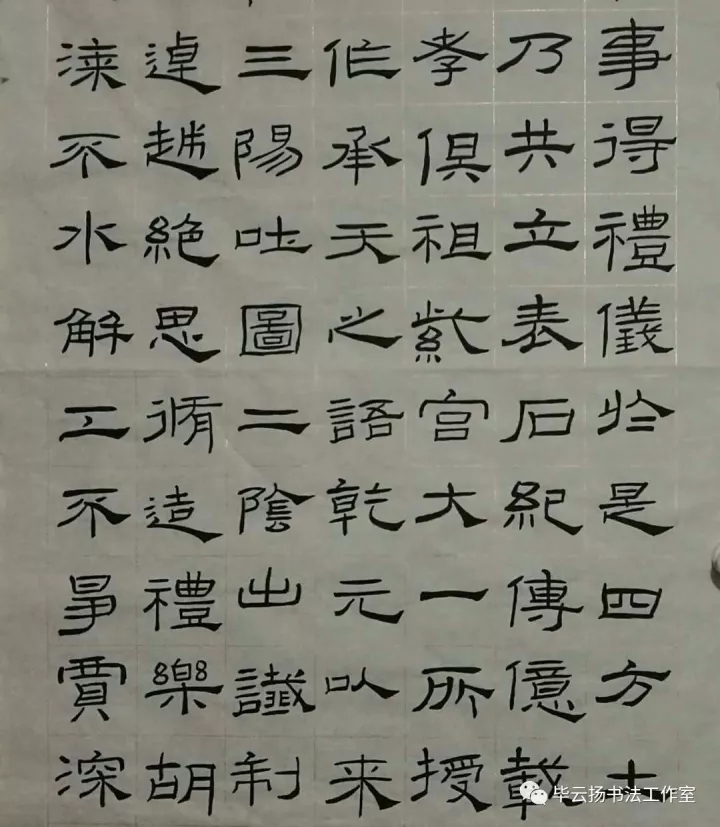 事得禮儀於是四方士
乃共立表石紀傳億載
孝俱祖紫宫大一所授
作承天之語乾元以来
三陽吐圖二陰出讖制
逴越絶思脩造禮樂胡
漆不水解工不爭賈深
毕云扬书法工作室